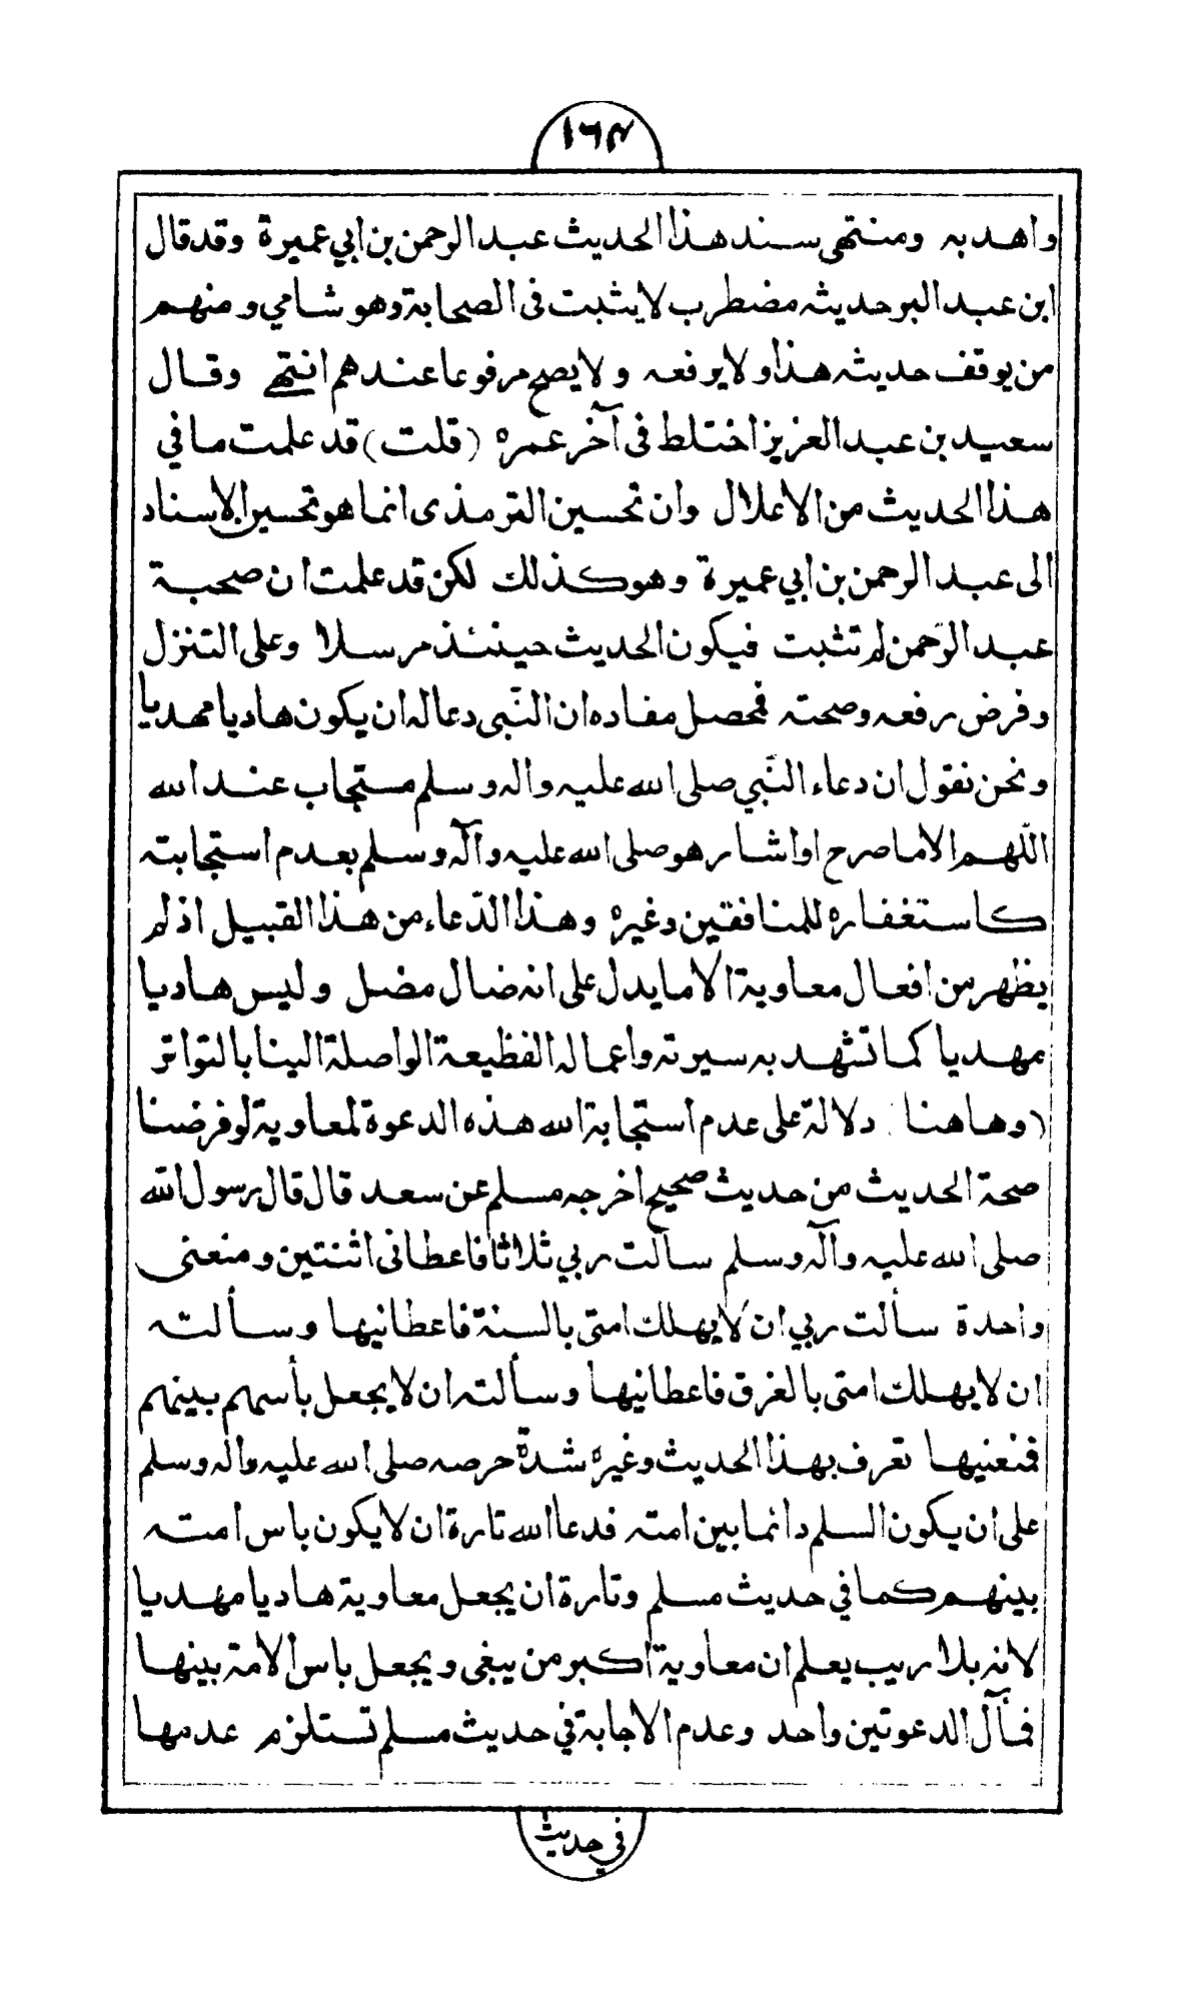 ١٦٤
واهد به ومنتهى سند هذا الحديث عبد الرحمن بن ابي عميرة وقد قال
ابن عبد البر حديثه مضطرب لا يثبت فى الصحابة وهو شامي ومنهم
من يوقف حديثه هذا ولا يرفعه ولا يصح مرفوعا عندهم انتهى وقال
سعيد بن عبد العزيز اختلط فى آخر عمره (قلت) قد علمت ما في
هذا الحديث من الاعلال وان تحسين الترمذى انما هو تحسين الاسناد
الى عبد الرحمن بن ابي عميرة وهو كذلك لكن قد علمت ان صحبة
عبد الرحمن لم تثبت فيكون الحديث حينئذ مرسلا وعلى التنزل
وفرض رفعه وصحته فمحصل مفاده ان النبى دعا له ان يكون هاديا مهديا
ونحن نقول ان دعاء النبي صلى الله عليه واله وسلم مستجاب عند الله
اللهم الا ما صرح او اشار هو صلى الله عليه وآله وسلم بعدم استجابته
كاستغفاره للمنافقين وغيره وهذا الدعاء من هذا القبيل اذ لم
يظهر من افعال معاوية الا ما يدل على انه ضال مضل وليس هاديا
مهديا كما تشهد به سيرته واعماله الفظيعة الواصلة الينا بالتواتر
(وها هنا) دلالة على عدم استجابة الله هذه الدعوة لمعاوية لو فرضنا
صحة الحديث من حديث صحيح اخرجه مسلم عن سعد قال قال رسول الله
صلى الله عليه وآله وسلم سالت ربي ثلاثا فاعطانى اثنتين ومنعنى
واحدة سألت ربي ان لا يهلك امتى بالسنة فاعطانيها وسألته
ان لا يهلك امتى بالغرق فاعطانيها وسألته ان لا يجعل بأسهم بينهم
فمنعنيها تعرف بهذا الحديث وغيره شدة حرصه صلى الله عليه واله وسلم
على ان يكون السلم دائما بين امته فدعا الله تارة ان لا يكون باس امته
بينهم كما في حديث مسلم وتارة ان يجعل معاوية هاديا مهديا
لانه بلا ريب يعلم ان معاوية اكبر من يبغى ويجعل باس الامة بينها
فمآل الدعوتين واحد وعدم الاجابة في حديث مسلم تستلزم عدمها
في حديث